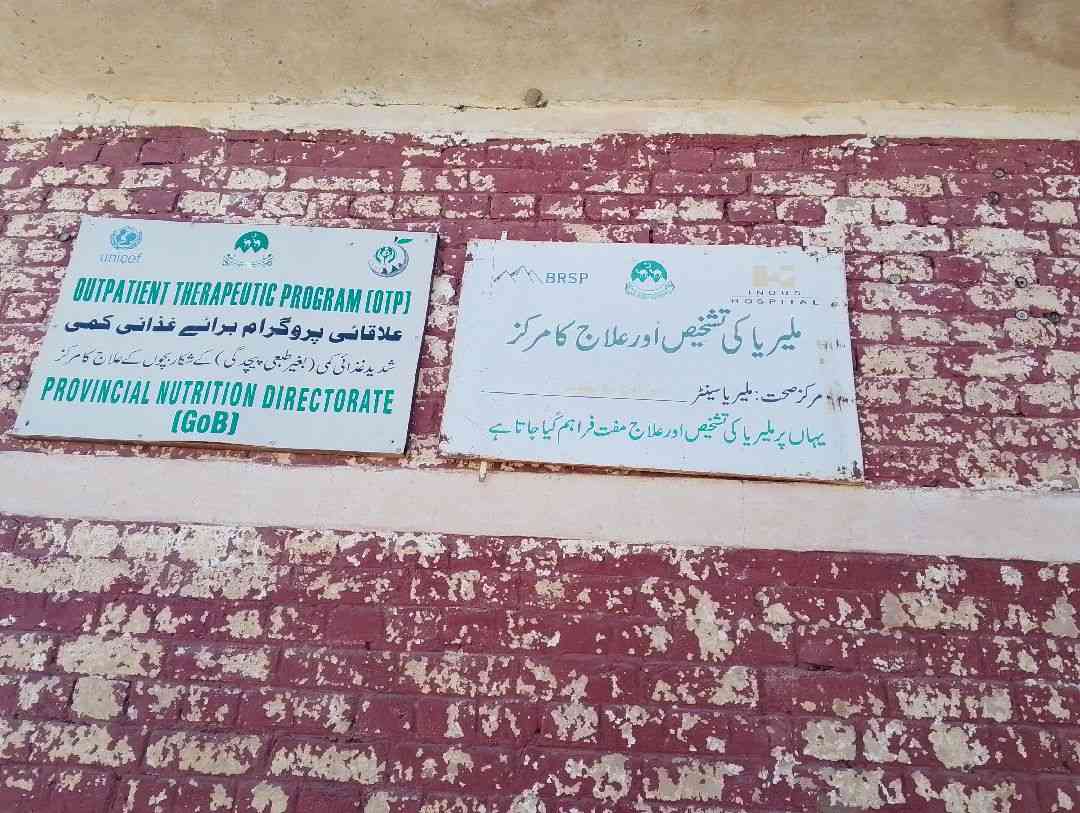 unicef
OUTPATIENT THERAPEUTIC PROGRAM (OTP)
علاقائی پروگرام برائے غذائی کمی
شدید غذائی کمی (بغیر طبعی پیچدگی) کے شکار بچوں کے علاج کا مرکز
PROVINCIAL NUTRITION DIRECTORATE
(GoB)
BRSP
INDUS
HOSPITAL
ملیریا کی تشخیص اور علاج کا مرکز
مرکز صحت: ملیریا سینٹر
یہاں پر ملیریا کی تشخیص اور علاج مفت فراہم کیا جاتا ہے